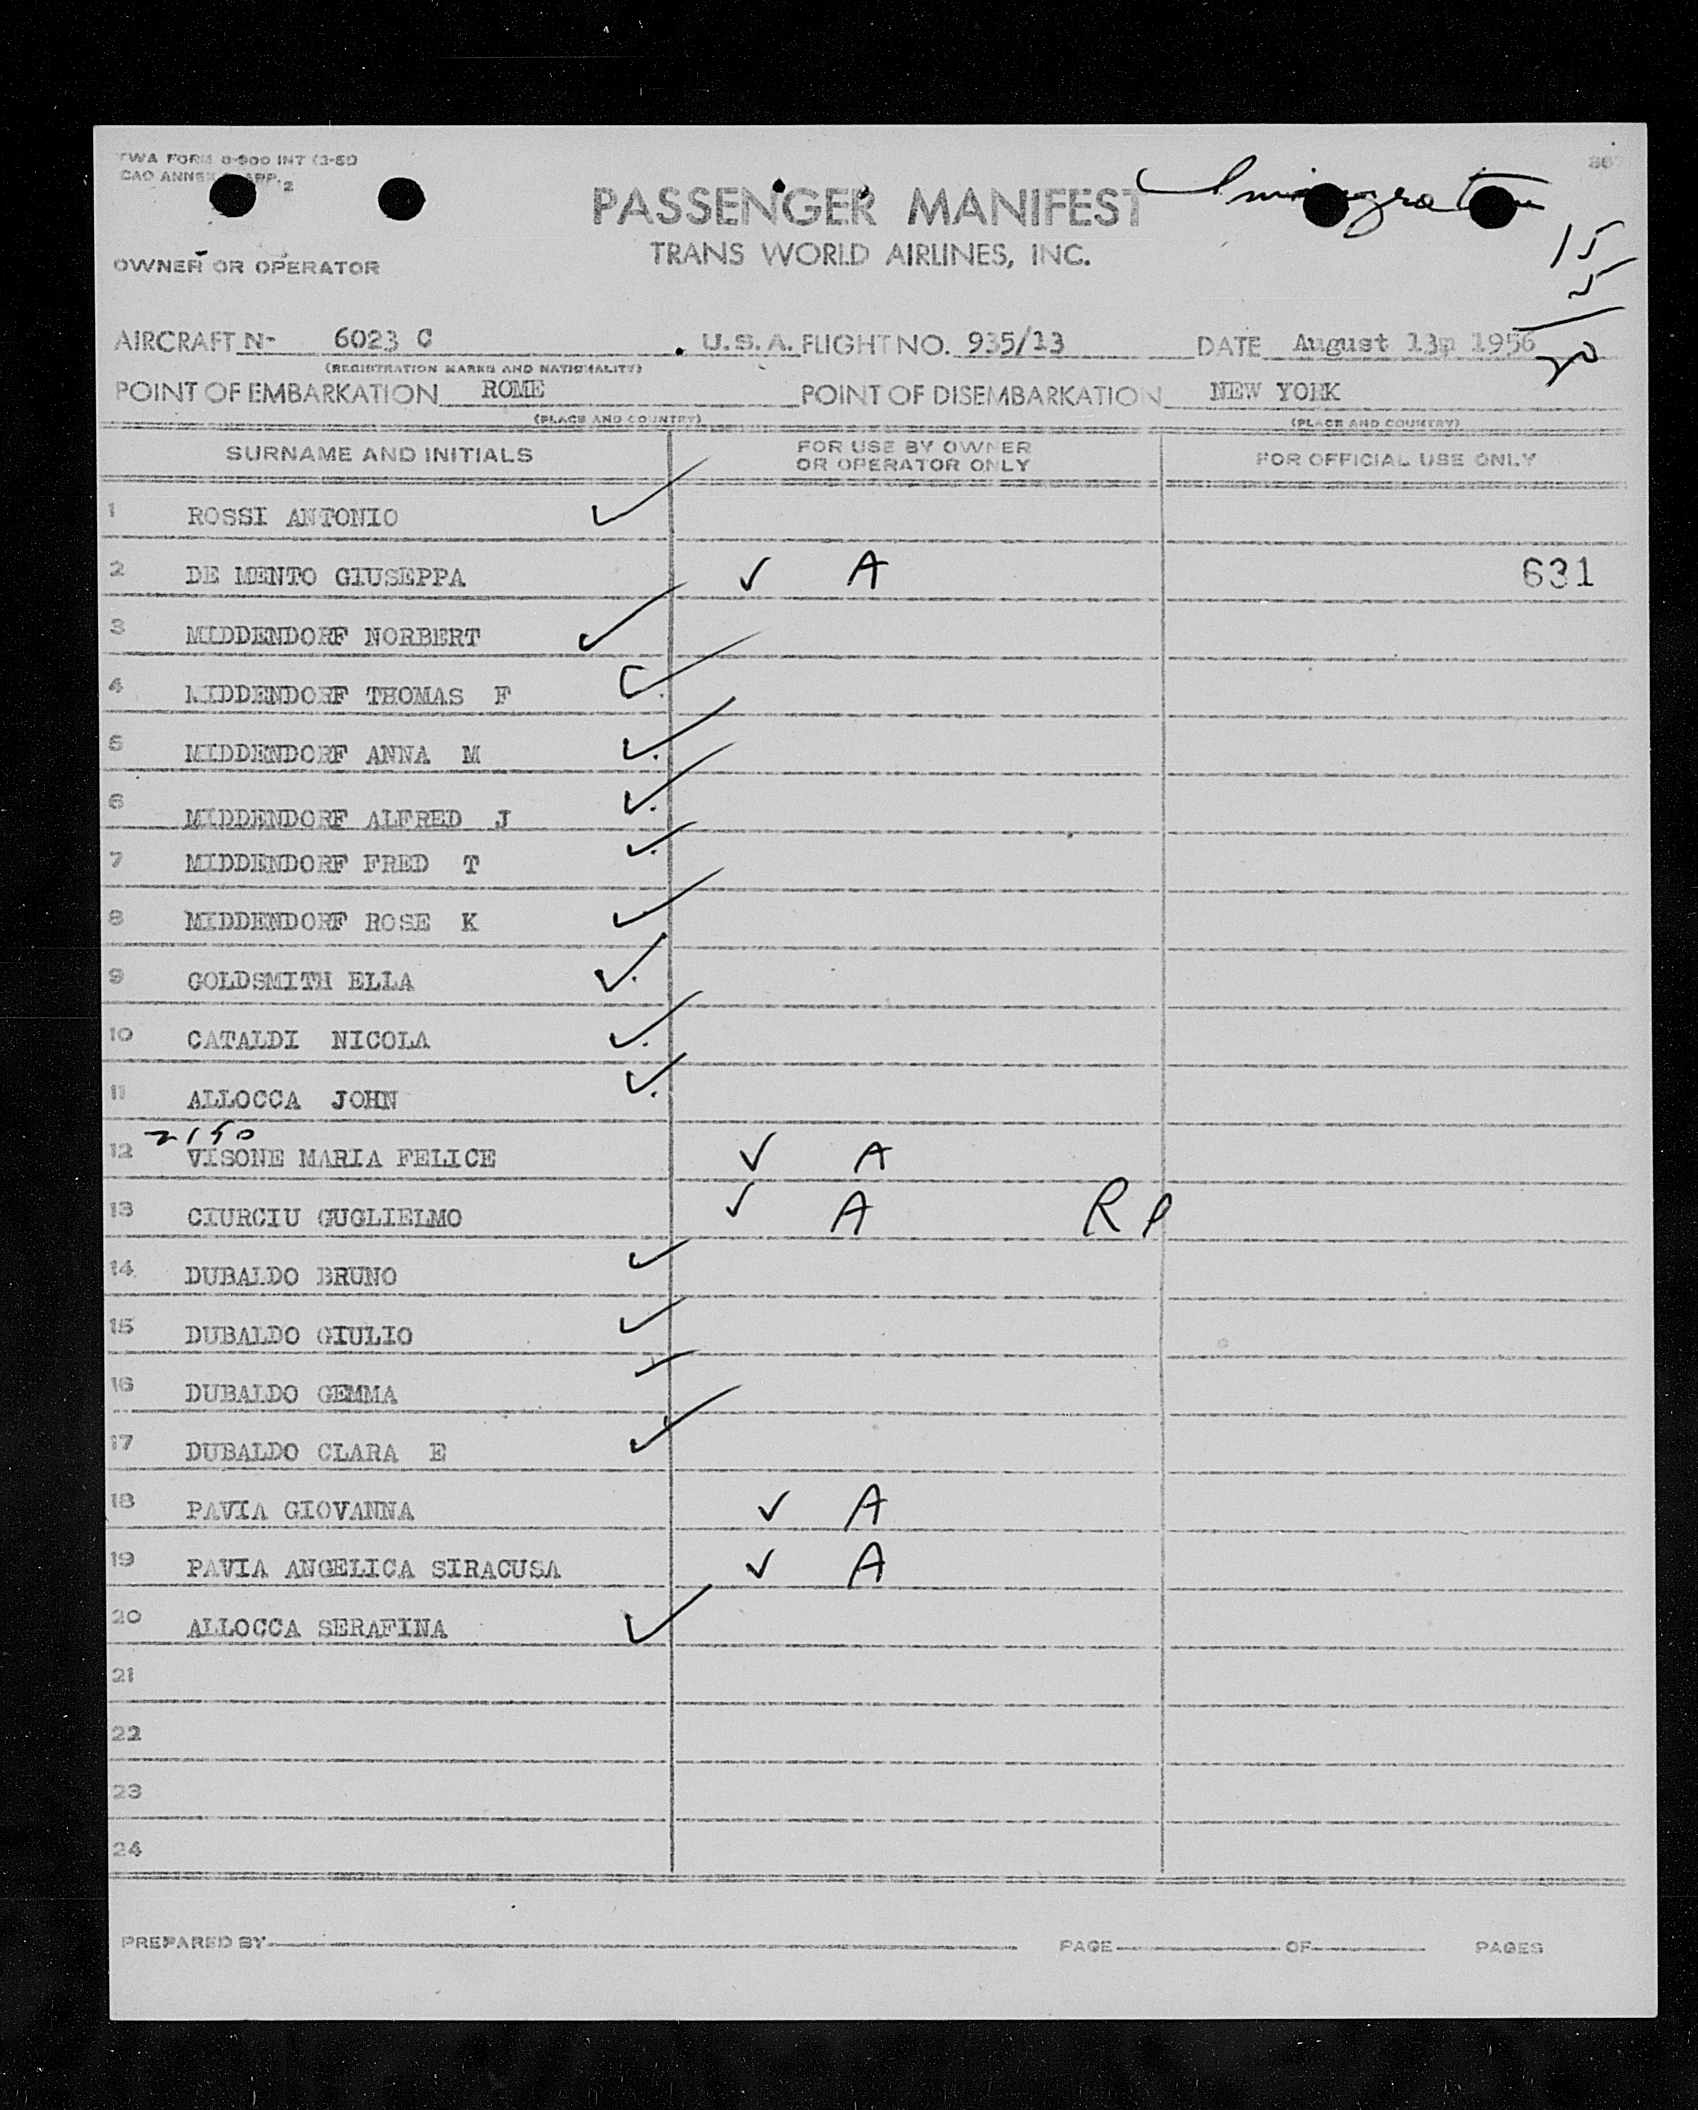 TWA FORM 0-900 INT (3-51)
CAO ANNEX APP. 2
PASSENGER MANIFEST Immigration
TRANS WORLD AIRLINES, INC.
OWNER OR OPERATOR
15
5
20
AIRCRAFT N- 6023 C . U.S.A. FLIGHT NO. 935/13 DATE August 13, 1956
(REGISTRATION MARKS AND NATIONALITY)
POINT OF EMBARKATION ROME POINT OF DISEMBARKATION NEW YORK
(PLACE AND COUNTRY) (PLACE AND COUNTRY)
SURNAME AND INITIALS FOR USE BY OWNER OR OPERATOR ONLY FOR OFFICIAL USE ONLY
1 ROSSI ANTONIO ✓
2 DE MENTO GIUSEPPA ✓ A 631
3 MIDDENDORF NORBERT ✓
4 MIDDENDORF THOMAS F ✓
5 MIDDENDORF ANNA M ✓
6 MIDDENDORF ALFRED J ✓
7 MIDDENDORF FRED T ✓
8 MIDDENDORF ROSE K ✓
9 GOLDSMITH ELLA ✓
10 CATALDI NICOLA ✓
11 ALLOCCA JOHN ✓
2150
12 VISONE MARIA FELICE ✓ A
13 CIURCIU GUGLIELMO ✓ A RP
14 DUBALDO BRUNO ✓
15 DUBALDO GIULIO ✓
16 DUBALDO GEMMA ✓
17 DUBALDO CLARA E ✓
18 PAVIA GIOVANNA ✓ A
19 PAVIA ANGELICA SIRACUSA ✓ A
20 ALLOCCA SERAFINA ✓
21
22
23
24
PREPARED BY PAGE OF PAGES